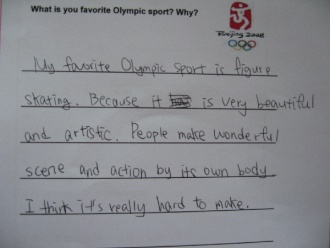 What is you favorite Olympic sport? Why?
Beijing 2008
My favorite Olympic sport is figure
skating. Because it is very beautiful
and artistic. People make wonderful
scene and action by its own body.
I think it's really hard to make.